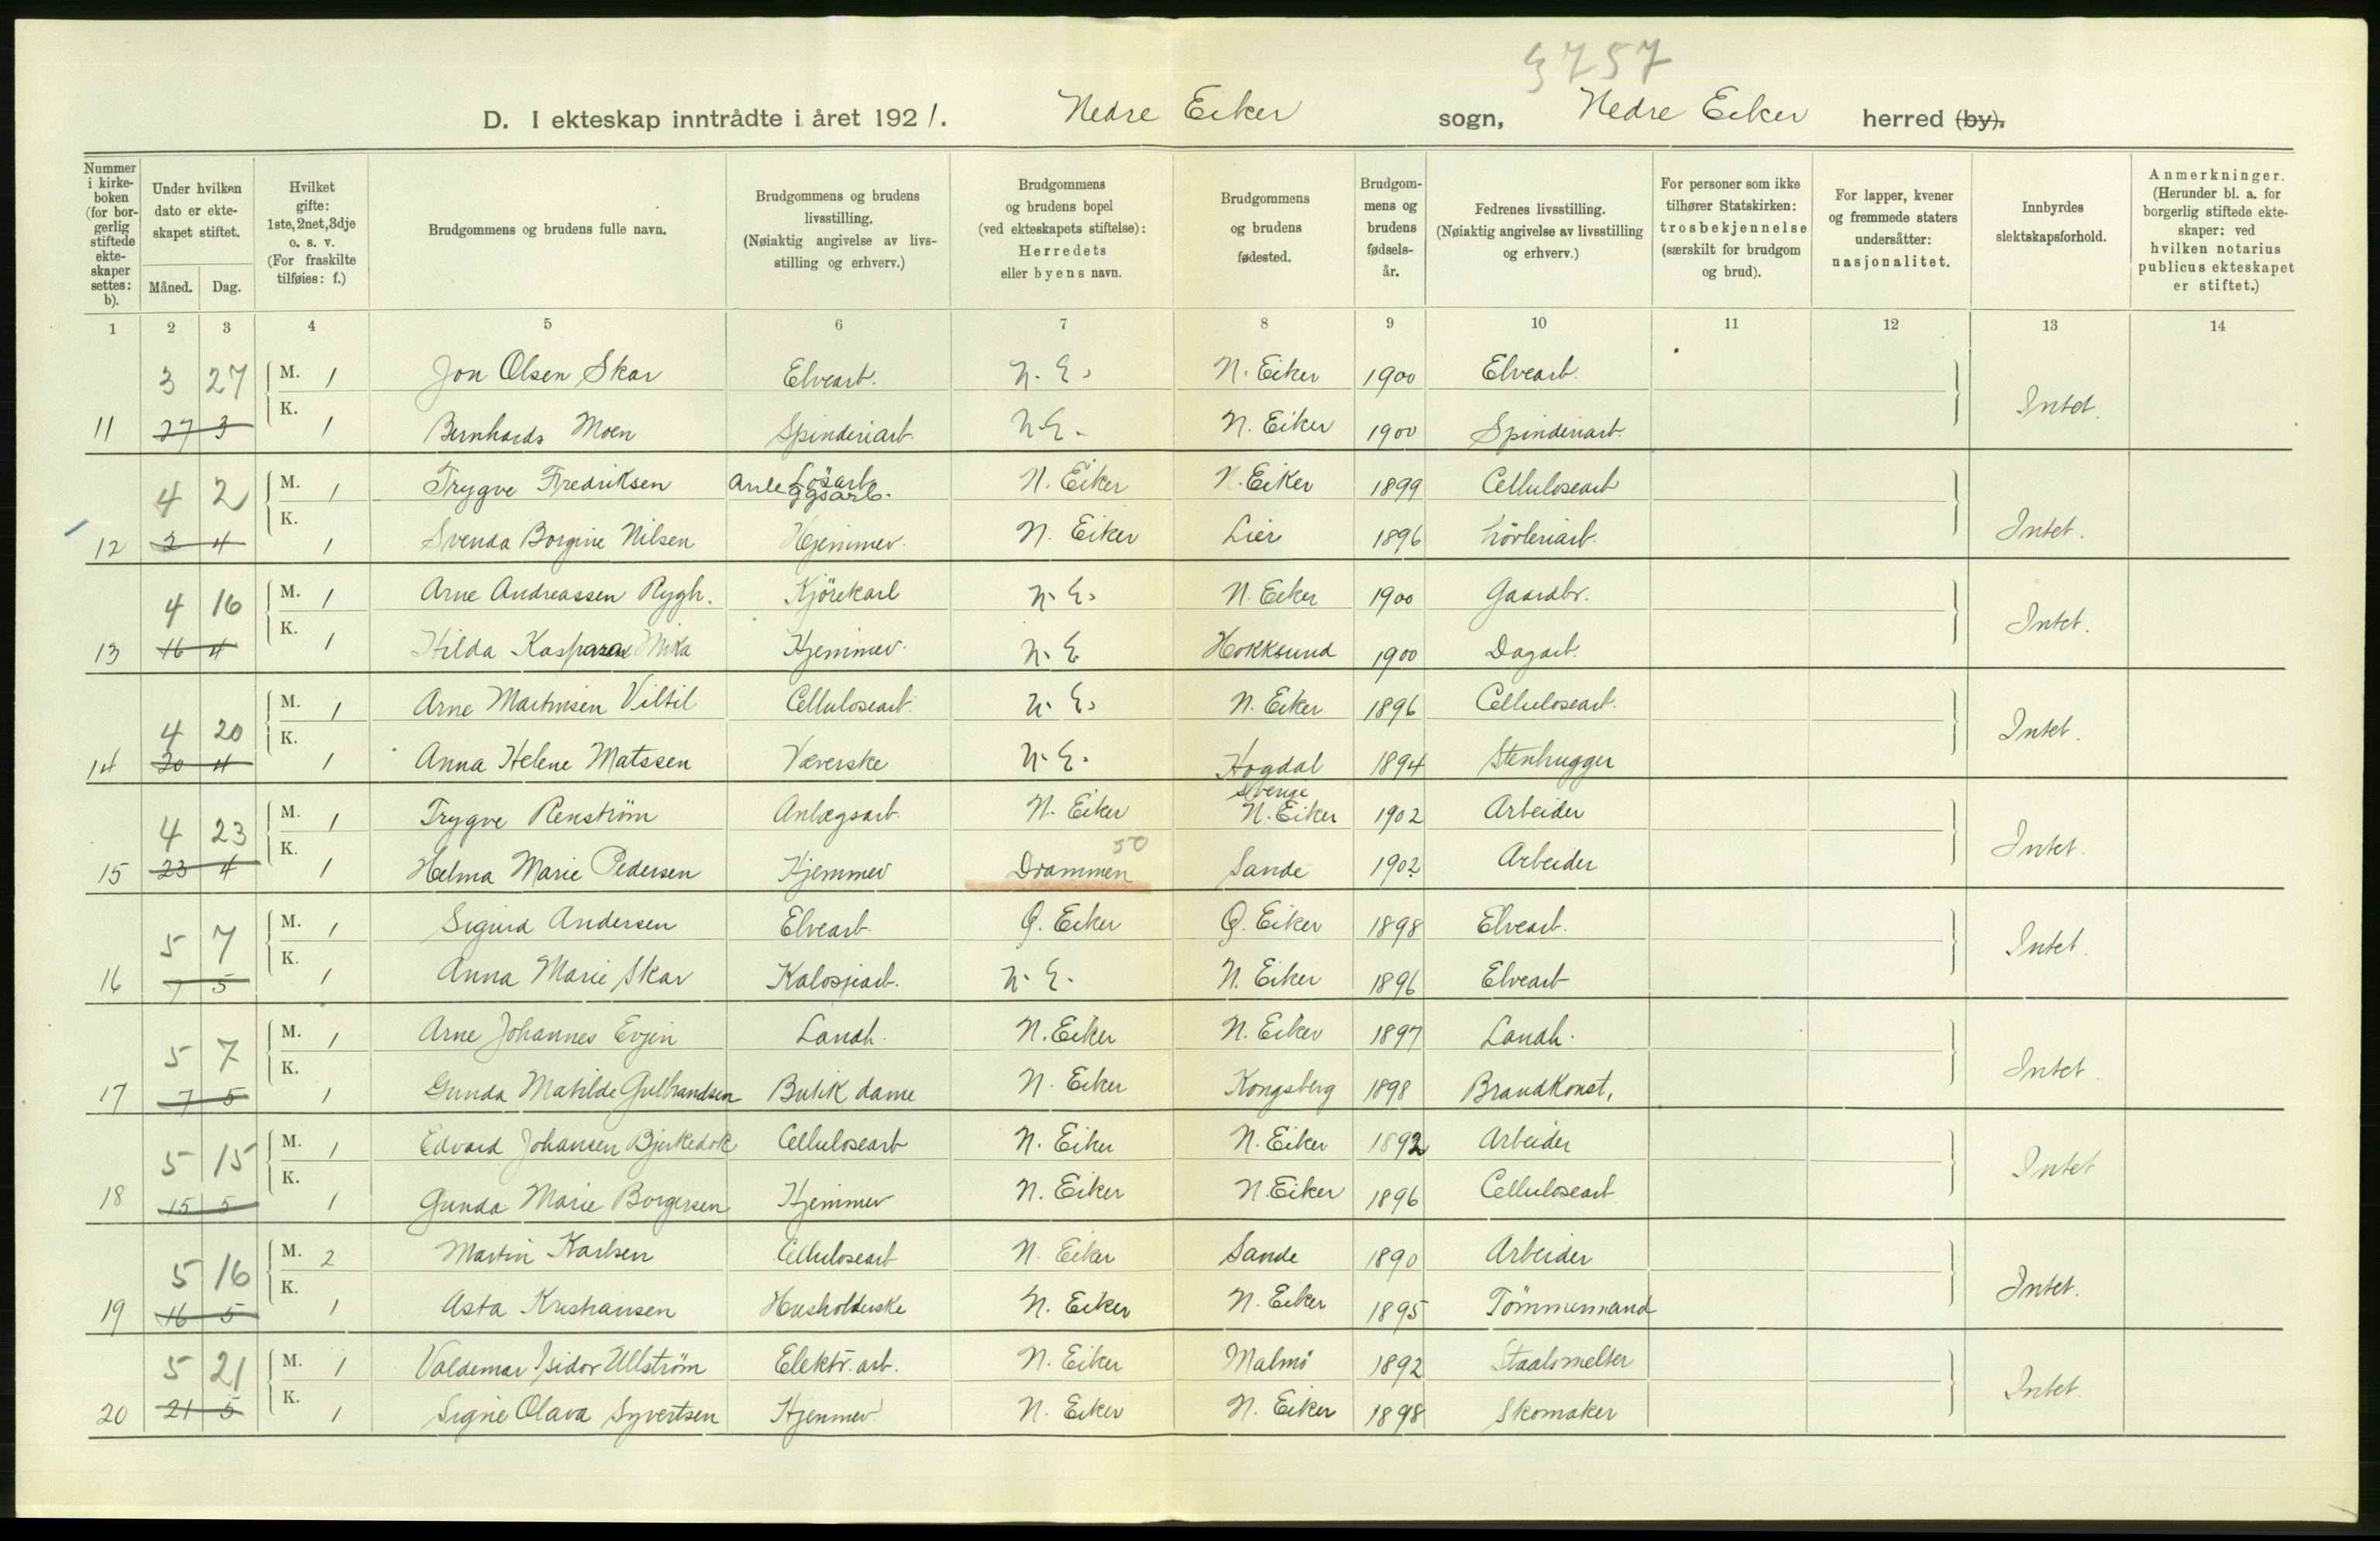 3757
D. I ekteskap inntrådte i året 1921. Nedre Eiker sogn, Nedre Eiker herred (by).
Nummer i kirke-boken (for bor-gerlig stiftede ekte-skaper settes: b).
Under hvilken dato er ekte-skapet stiftet.
Måned. Dag.
Hvilket gifte: 1ste, 2net, 3dje o. s. v. (For fraskilte tilføies: f.)
Brudgommens og brudens fulle navn.
Brudgommens og brudens livsstilling. (Nøiaktig angivelse av livs-stilling og erhverv.)
Brudgommens og brudens bopel (ved ekteskapets stiftelse): Herredets eller byens navn.
Brudgommens og brudens fødested.
Brudgom-mens og brudens fødsels-år.
Fedrenes livsstilling. (Nøiaktig angivelse av livsstilling og erhverv.)
For personer som ikke tilhører Statskirken: trosbekjennelse (særskilt for brudgom og brud).
For lapper, kvener og fremmede staters undersåtter: nasjonalitet.
Innbyrdes slektskapsforhold.
Anmerkninger. (Herunder bl. a. for borgerlig stiftede ekte-skaper: ved hvilken notarius publicus ekteskapet er stiftet.)
1 2 3 4 5 6 7 8 9 10 11 12 13 14
3 27 M. 1 Jon Olsen Skar Elvearb. N. E. N. Eiker 1900 Elvearb.
11 27 3 K. 1 Bernharda Moen Spinderiarb. N. E. N. Eiker 1900 Spinderiarb. Intet.
4 2 M. 1 Trygve Fredriksen Lösarb. Anleggsarb. N. Eiker N. Eiker 1899 Cellulosearb
12 2 4 K. 1 Svenda Borgine Nilsen Hjemmev. N. Eiker Lier 1896 Intet.
4 16 M. 1 Arne Andreassen Rygh. Kjörekarl N. E. N. Eiker 1900 Gaardbr.
13 16 4 K. 1 Hilda Kaspara Mika Hjemmev. N. E. Hokksund 1900 Dagarb. Intet.
4 20 M. 1 Arne Martinsen Viltil Cellulosearb. N. E. N. Eiker 1896 Cellulosearb.
14 20 4 K. 1 Anna Helene Matssen Væverske N. E. Hogdal Sverige 1894 Stenhugger Intet.
4 23 M. 1 Trygve Renström Anlægsarb. N. Eiker N. Eiker 1902 Arbeider
15 23 4 K. 1 Helma Marie Pedersen Hjemmev Drammen 50 Sande 1902 Arbeider Intet.
5 7 M. 1 Sigurd Andersen Elvearb. Ø. Eiker Ø. Eiker 1898 Elvearb.
16 7 5 K. 1 Anna Marie Skar Kalosjearb. N. E. N. Eiker 1896 Elvearb Intet.
5 7 M. 1 Arne Johannes Evjen Landh. N. Eiker N. Eiker 1897 Landh.
17 7 5 K. 1 Gunda Matilde Gulbrandsen Butik dame N. Eiker Kongsberg 1898 Brandkonst. Intet.
5 15 M. 1 Edvard Johansen Bjerkedok Cellulosearb N. Eiker N. Eiker 1892 Arbeider
18 15 5 K. 1 Gunda Marie Borgersen Hjemmev N. Eiker N. Eiker 1896 Cellulosearb. Intet
5 16 M. 2 Martin Karlsen Cellulosearb N. Eiker Sande 1890 Arbeider
19 16 5 K. 1 Asta Kristiansen Husholderske N. Eiker N. Eiker 1895 Tömmermand Intet.
5 21 M. 1 Valdemar Isidor Ullström Elektr. arb. N. Eiker Malmö 1892 Staalsmelter
20 21 5 K. 1 Signe Olava Syvertsen Hjemmev. N. Eiker N. Eiker 1898 Skomaker Intet.